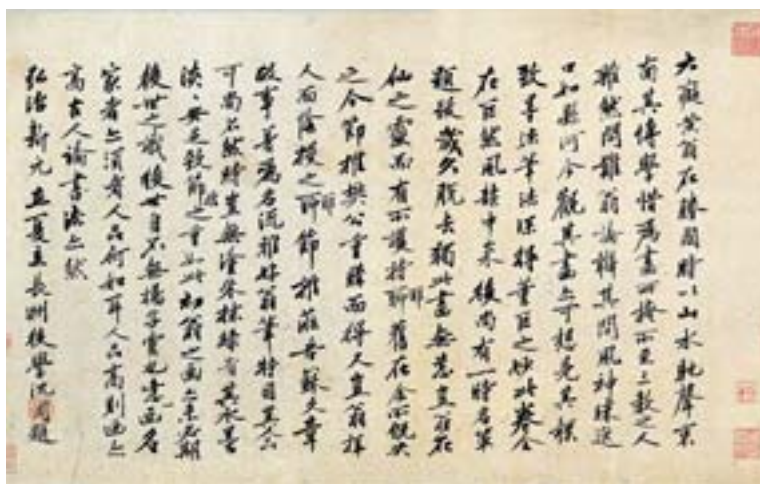 大癡黃翁在勝國時以山水馳聲東
南其博學惜為畫所掩所至三教之人
雜然問難翁論辯其間風神竦逸
口如懸河今觀其畫亦可想見其標
致墨法筆法深得董巨之妙此卷全
在巨然風韻中來後尚有一時名輩
題跋歲久脫去獨此畫無恙豈翁在
仙之靈而有所護持耶舊在余所既失
之今節推樊公重購而得又豈翁擇
人而陰授之耶節推蒞吾蘇文章
政事著為名流雅好翁筆特因其人品
可尚不然時豈無塗朱抹綠者其水墨
淡淡安足致節推之重如此初翁之畫亦未必期
後世之識後世自不無揚子雲也噫畫名
家者亦須看人品何如耳人品高則畫亦
高古人論書法亦然
弘治新元立夏立長洲後學沈周題